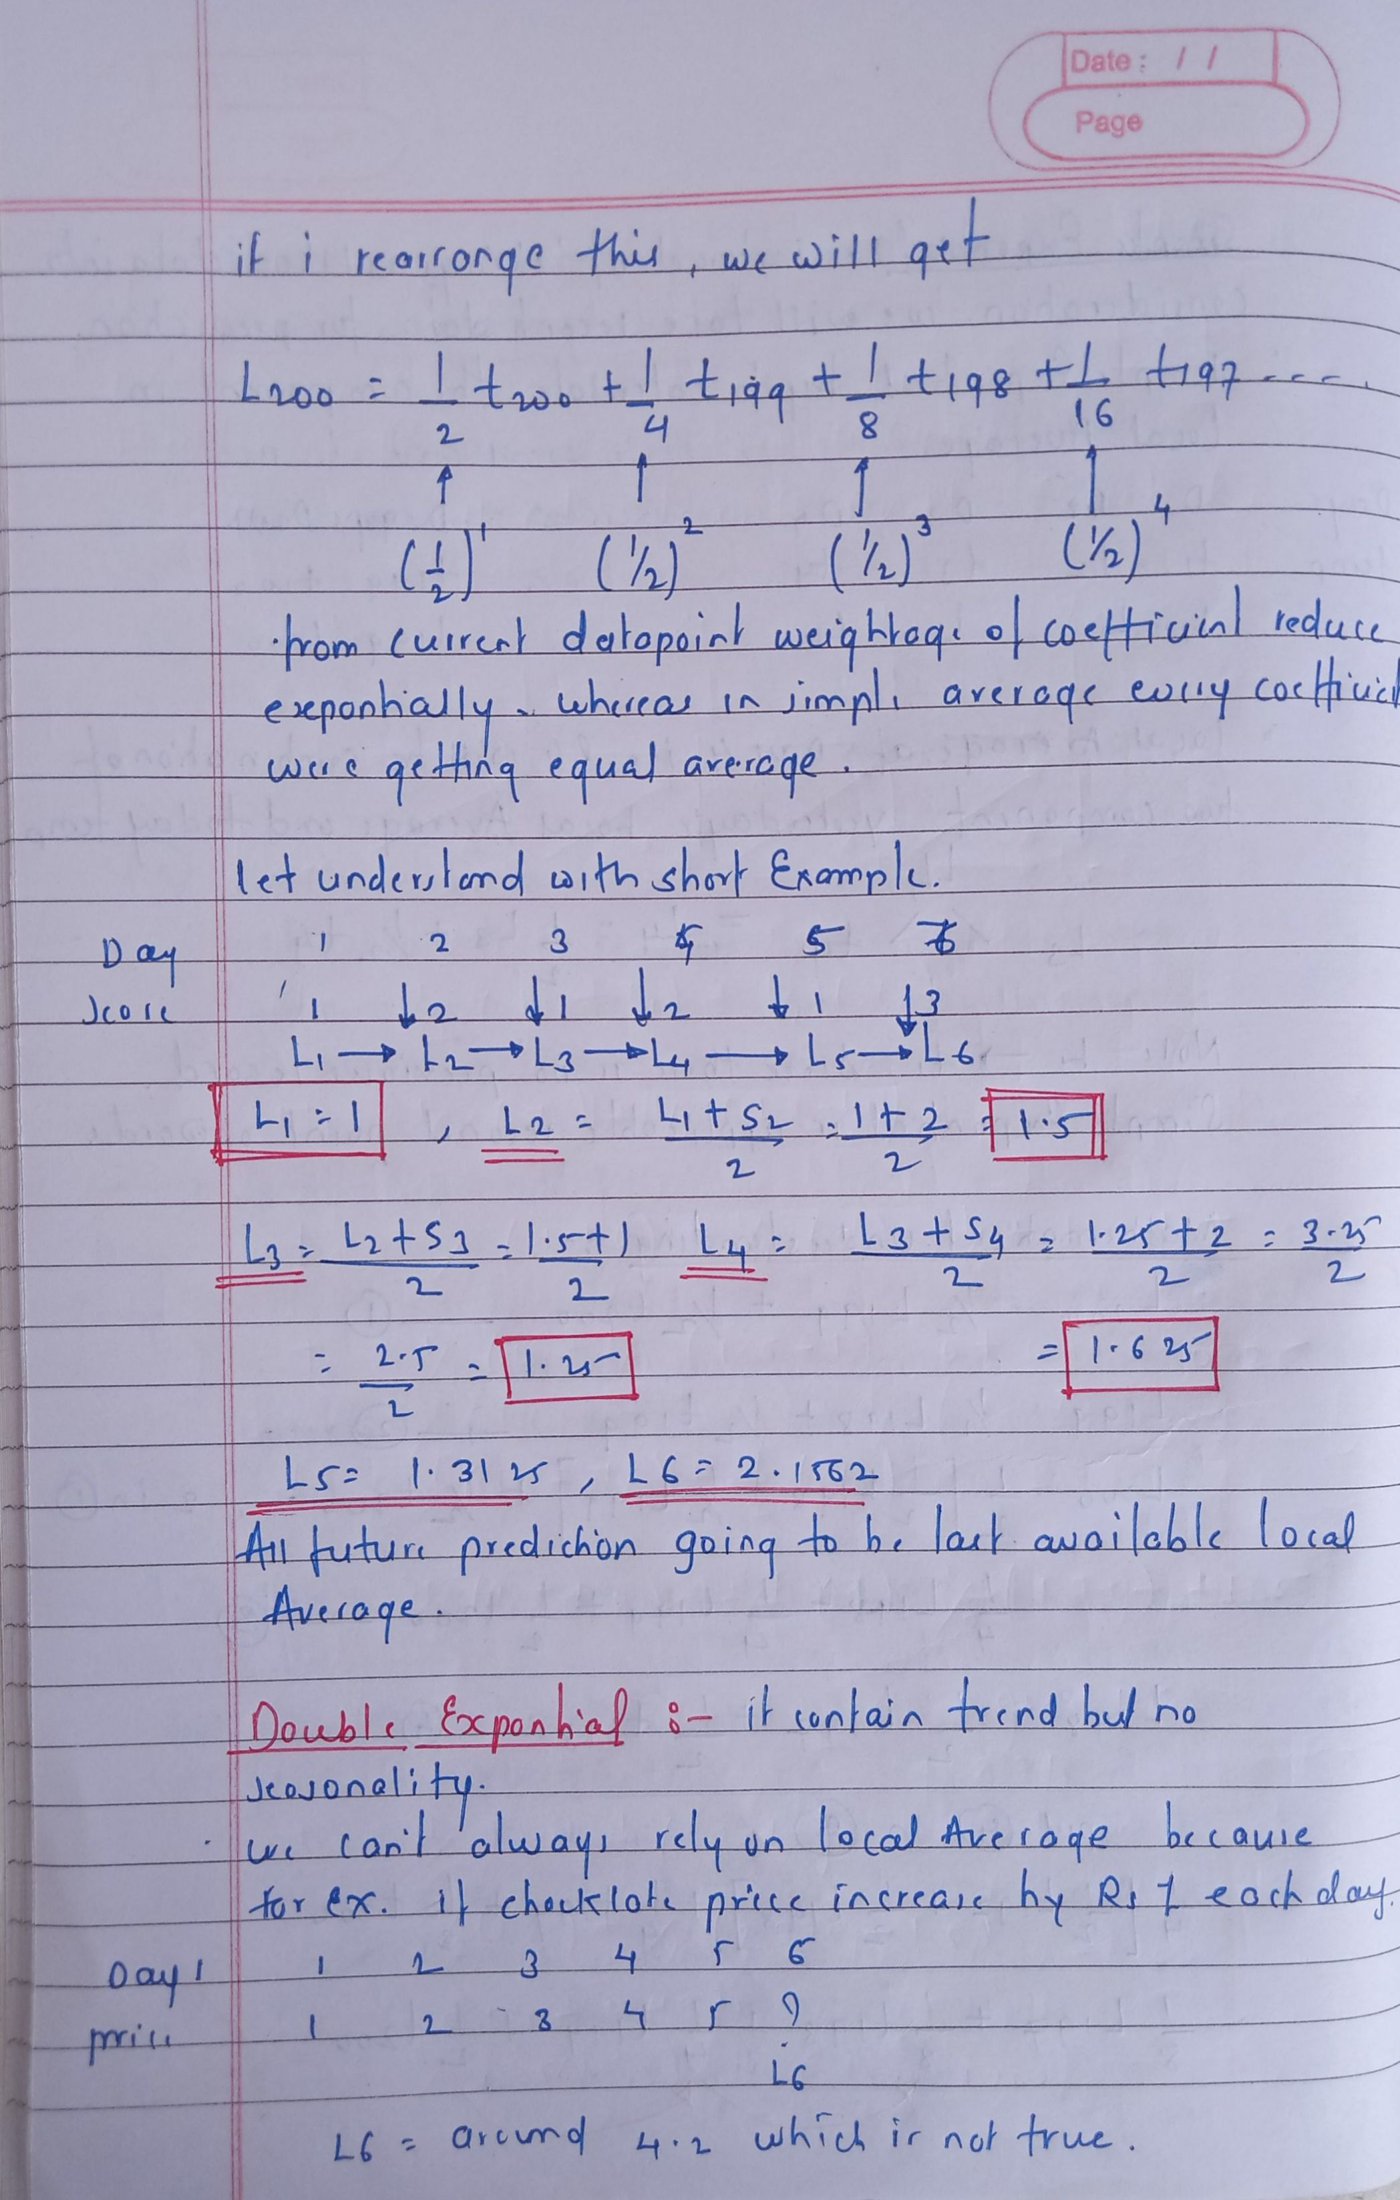 Date : / /
Page
if i rearrange this, we will get
L200 = 1/2 t200 + 1/4 t199 + 1/8 t198 + 1/16 t197 ----.
(1/2)^1 (1/2)^2 (1/2)^3 (1/2)^4
. from current datapoint weightage of coefficient reduce
exponhially. whereas in simple average every coefficient
were getting equal average.
let understand with short Example.
Day 1 2 3 4 5 6
score 1 ↓2 ↓1 ↓2 ↓1 ↓3
L1 → L2 → L3 → L4 → L5 → L6
L1 = 1 , L2 = (L1 + S2)/2 = (1 + 2)/2 = 1.5
L3 = (L2 + S3)/2 = (1.5 + 1)/2 L4 = (L3 + S4)/2 = (1.25 + 2)/2 = 3.25/2
= 2.5/2 = 1.25 = 1.625
L5 = 1.3125 , L6 = 2.1562
All future prediction going to be last available local
Average.
Double Exponhial :- it contain trend but no
seasonality.
. we can't always rely on local Average because
for ex. if chocklate price increase by Rs 1 each day.
Day 1 1 2 3 4 5 6
price 1 2 3 4 5 ?
L6
L6 = around 4.2 which is not true.